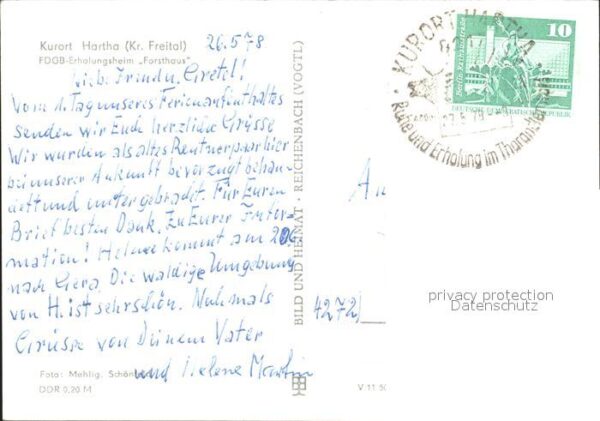 Kurort Hartha (Kr. Freital)
FDGB-Erholungsheim „Forsthaus"
26.5.78
Lieb. Friedu. Gretel!
Vom 1. Tag unseres Ferienaufenthaltes
senden wir Euch herzliche Grüsse
Wir wurden als altes Rentnerpaar hier
bei unserer Ankunft bevorzugt behan-
delt und untergebracht. Für Euren
Brief besten Dank. Zu Eurer Infor-
mation! Helene kommt am 20
nach Gera. Die waldige Umgebung
von H. ist sehr schön. Nochmals
Grüsse von Deinem Vater
und Helene Martin
Foto: Mehlig, Schön
DDR 0,20 M
BILD UND HEIMAT · REICHENBACH (VOGTL)
V 11 50
An
4272
KURORT HARTHA
Ruhe und Erholung im Tharandt
10
DEUTSCHE DEMOKRATISCHE REPUBLIK
privacy protection
Datenschutz